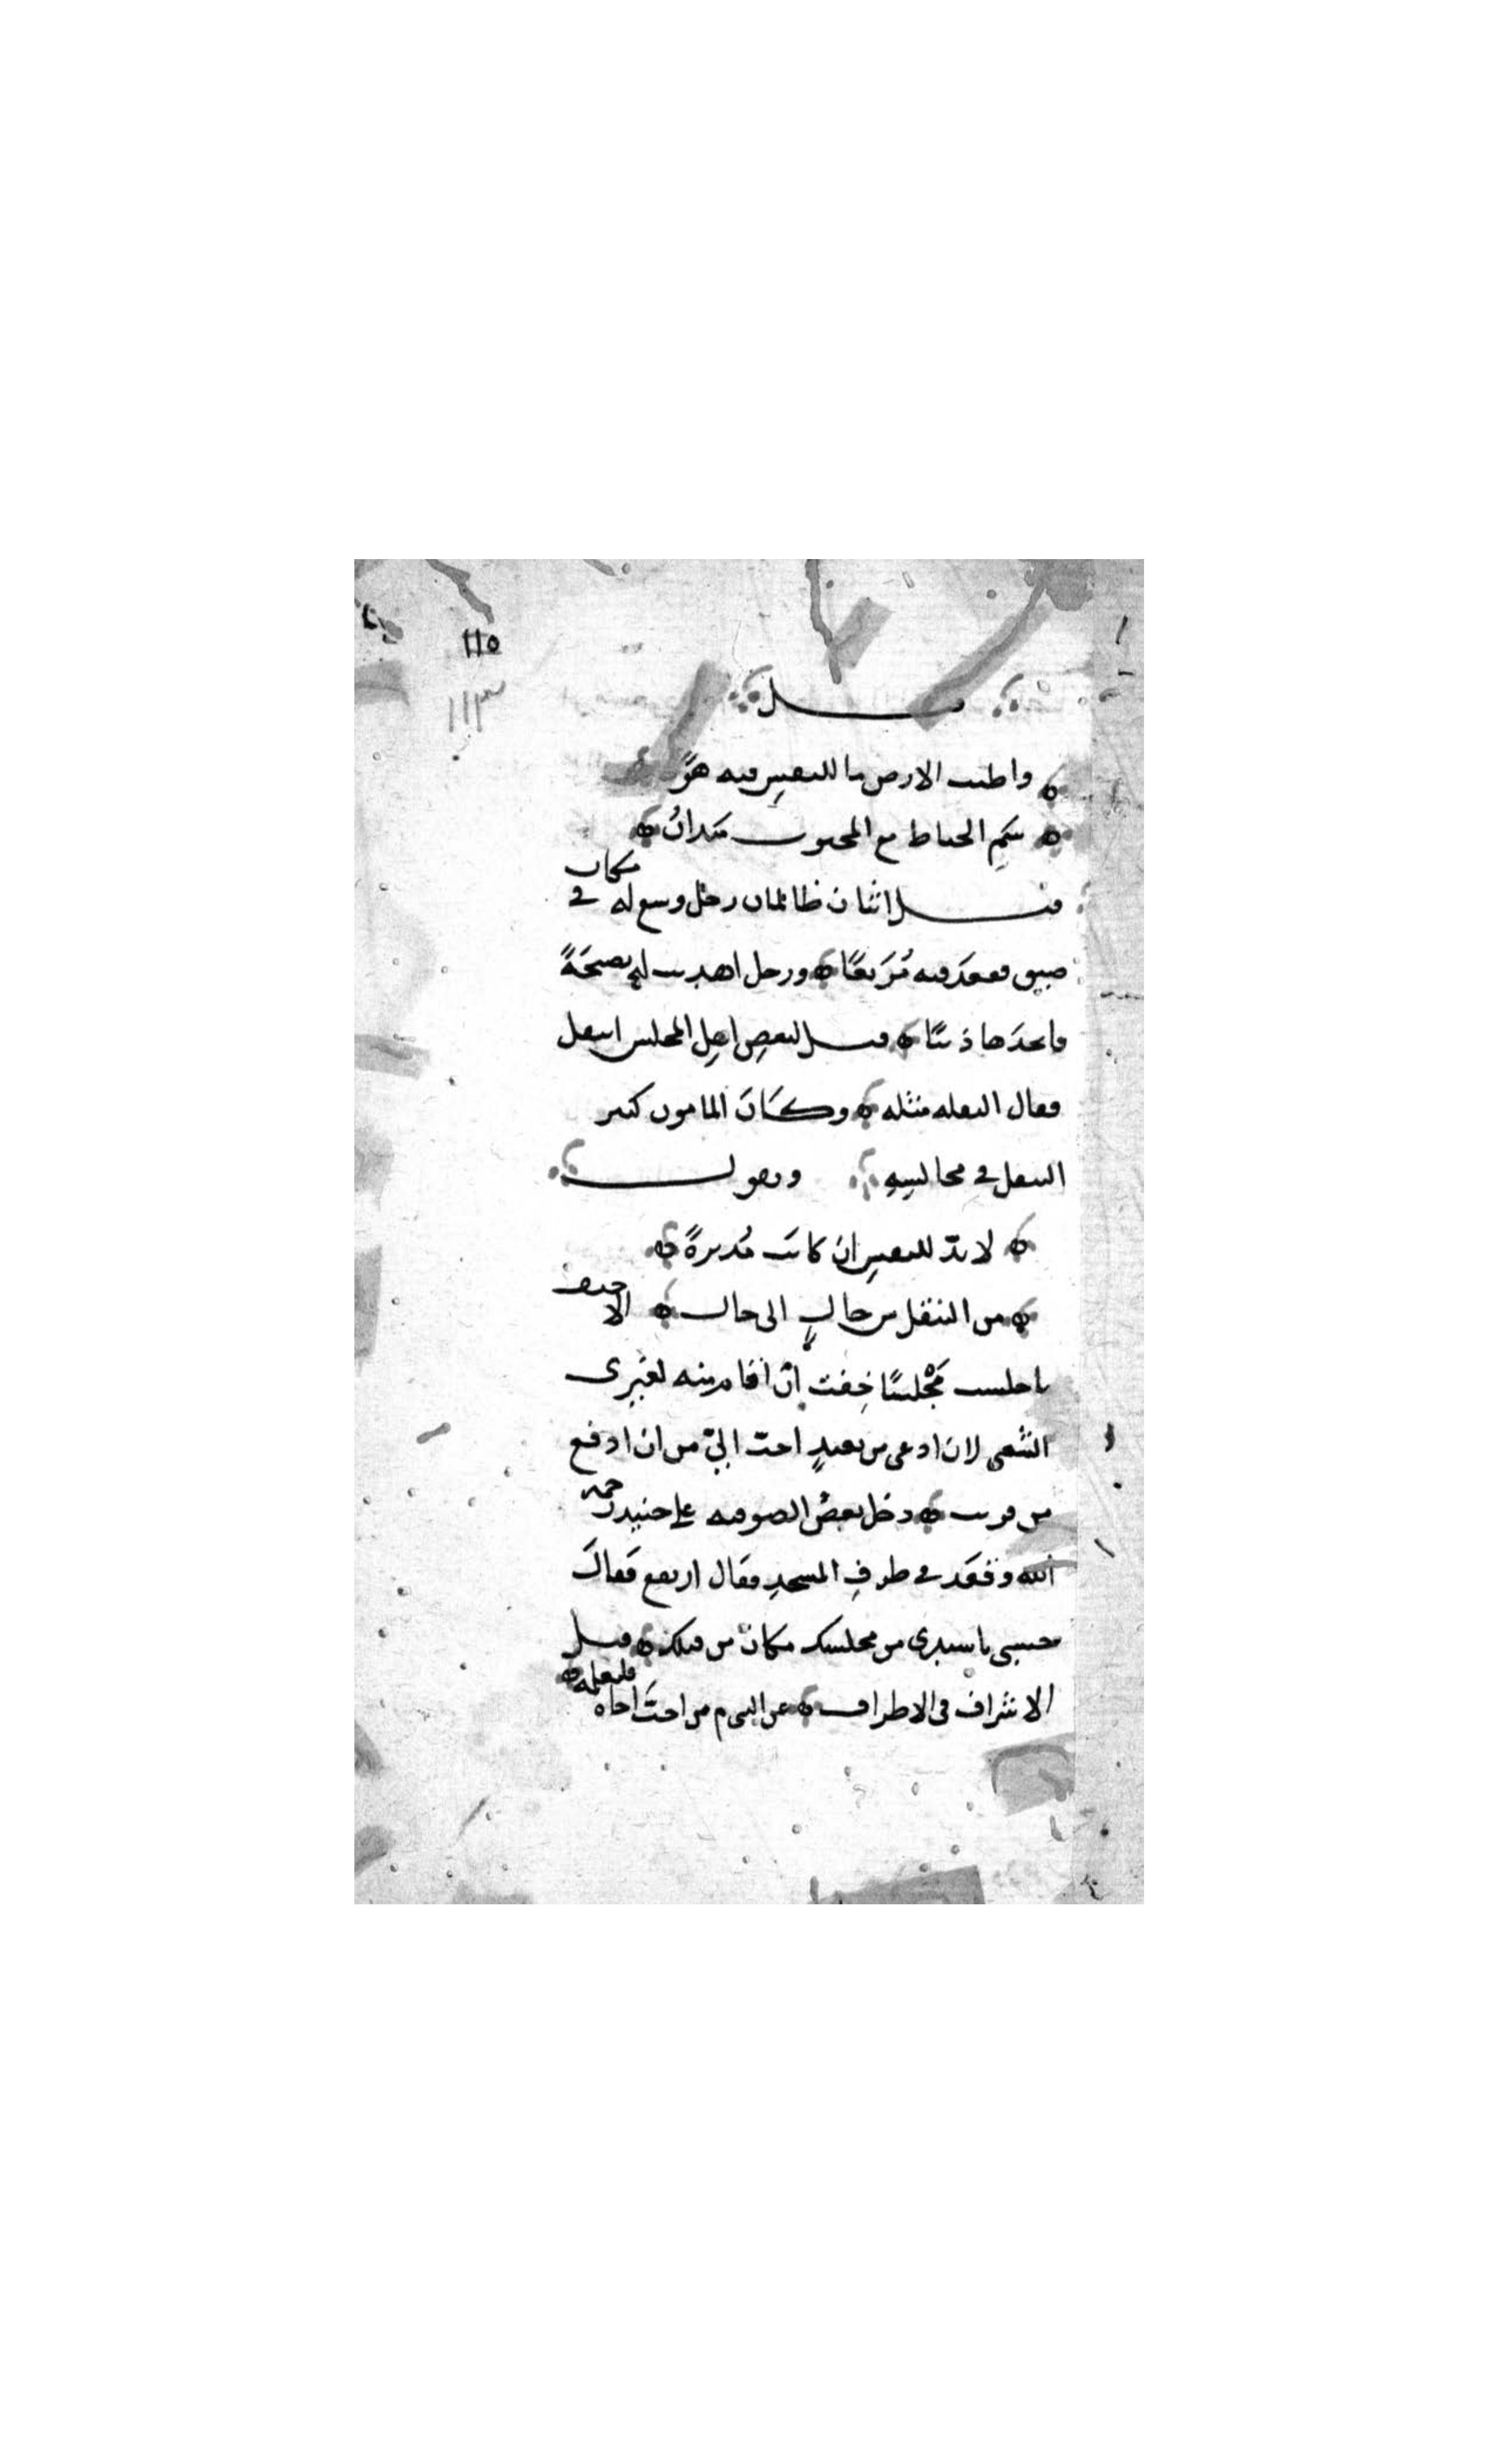 ١١٥
١١٣
قيل
واطيب الارض ما للنفس فيه هوًى
سَمّ الخياط مع المحبوب ميدانُ
قيل اثنان ظالمان رجل وسع له مكان في
ضيق فقعد فيه مُتربعًا ورجل اهديت له نصيحةً
فاتخذها ذنبًا قيل لبعض اهل المجلس انتقل
فقال النقله مثله وكان المامون كثير
التنقل في مجالسِهِ ويقول
لا بدّ للنفسِ ان كانت مُدبرةً
من التنقل من حالٍ الى حال الاحنف
ما جلست مَجْلسًا خِفت ان اقام منه لغيري
الشعبي لان ادعى من بعيدٍ احبّ اليّ من ان ادفع
من قريب دخل بعض الصوفيه على جنيد رحمه
الله وقعَد في طرفِ المسجدِ فقال ارتفع فقالَ
حسبي يا سيدي من مجلسك مكان من قلبك قيل
الاشراف في الاطراف عن النبي م من احبّ اخاه فليعلمه